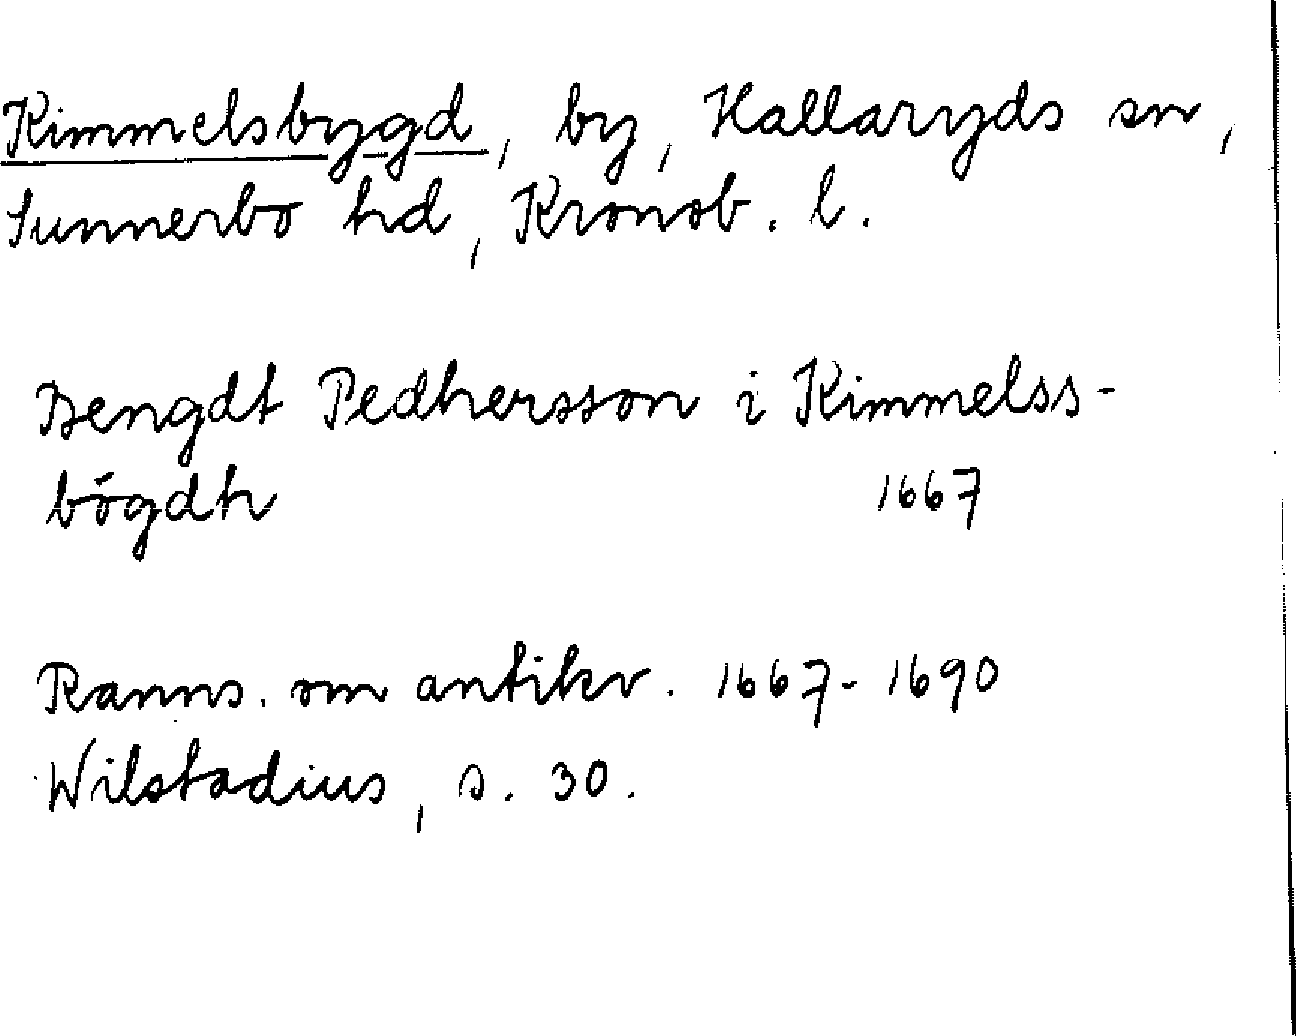 Kimmelsbygd, by, Hallaryds sn,
Sunnerbo hd, Kronob. l.
Bengdt Pedhersson i Kimmelss-
bögdh 1667
Ranns. om antikv. 1667-1690
Wilstadius, s. 30.